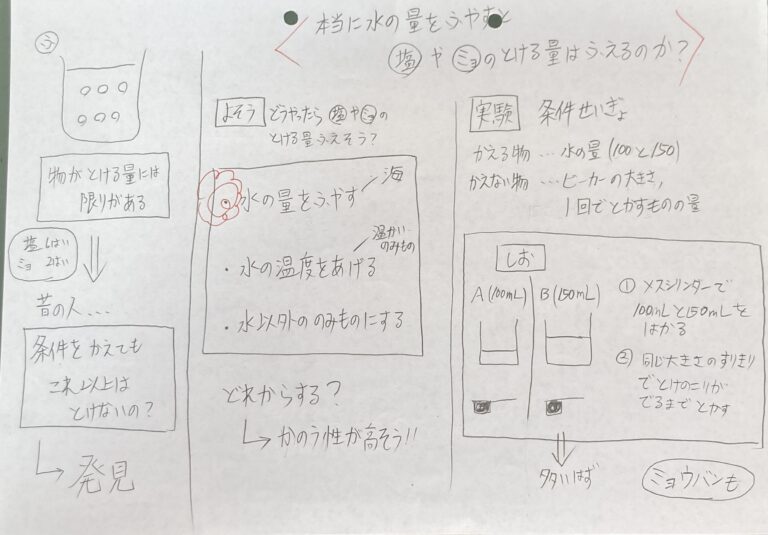 本当に水の量をふやすと
塩やミョのとける量はふえるのか？
ふ
物がとける量には
限りがある
塩 6ぱい
ミョ 2はい
昔の人...
条件をかえても
これ以上は
とけないの？
発見
よそう どうやったら塩やミョの
とける量ふえそう？
水の量をふやす
海
・水の温度をあげる
温かい
のみもの
・水以外ののみものにする
どれからする？
かのう性が高そう!!
実験 条件せいぎょ
かえる物...水の量(100と150)
かえない物...ビーカーの大きさ,
1回でとかすものの量
しお
A(100mL) B(150mL)
① メスシリンダーで
100mLと150mLを
はかる
② 同じ大きさのすりきり
でとけのこりが
でるまでとかす
多いはず
ミョウバンも